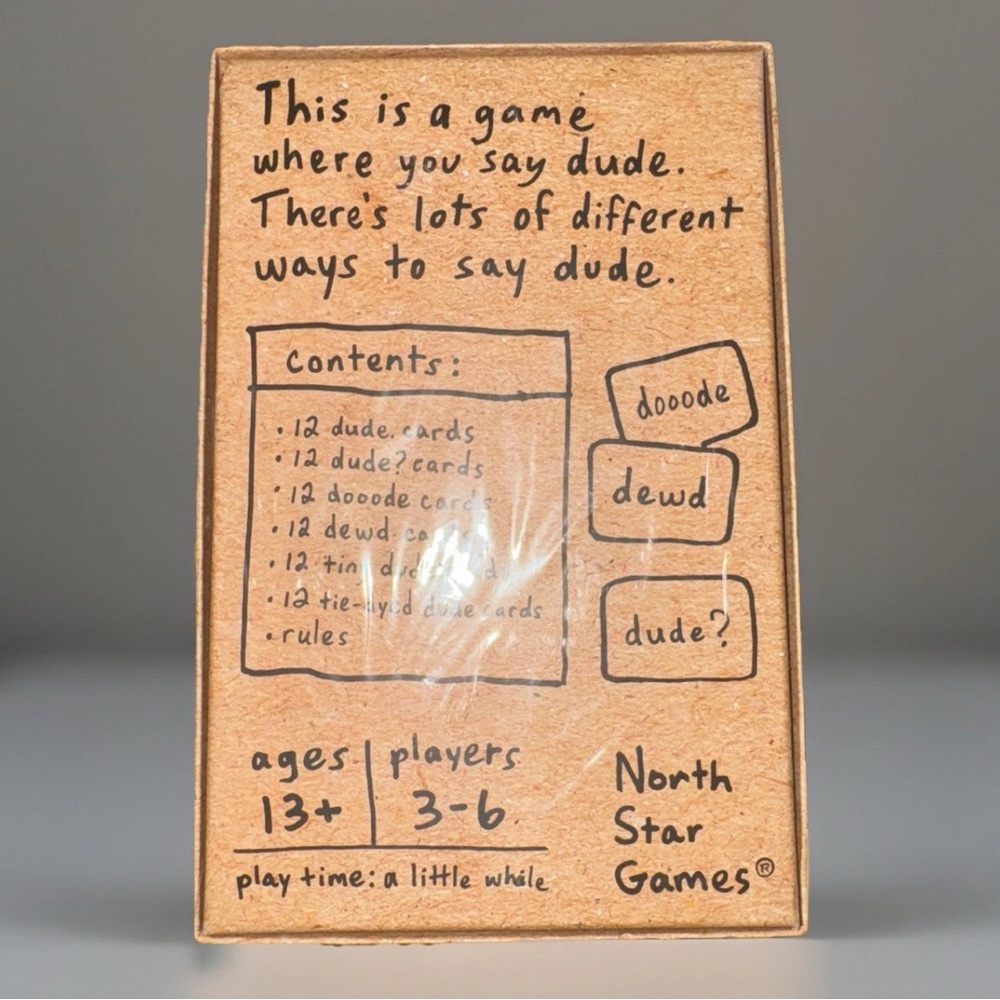 This is a game
where you say dude.
There's lots of different
ways to say dude.
contents:
• 12 dude. cards
• 12 dude? cards
• 12 dooode cards
• 12 dewd
• 12 tiny
• 12 tie-dyed dude cards
• rules
dooode
dewd
dude?
ages
13+
players
3-6
play time: a little while
North
Star
Games®